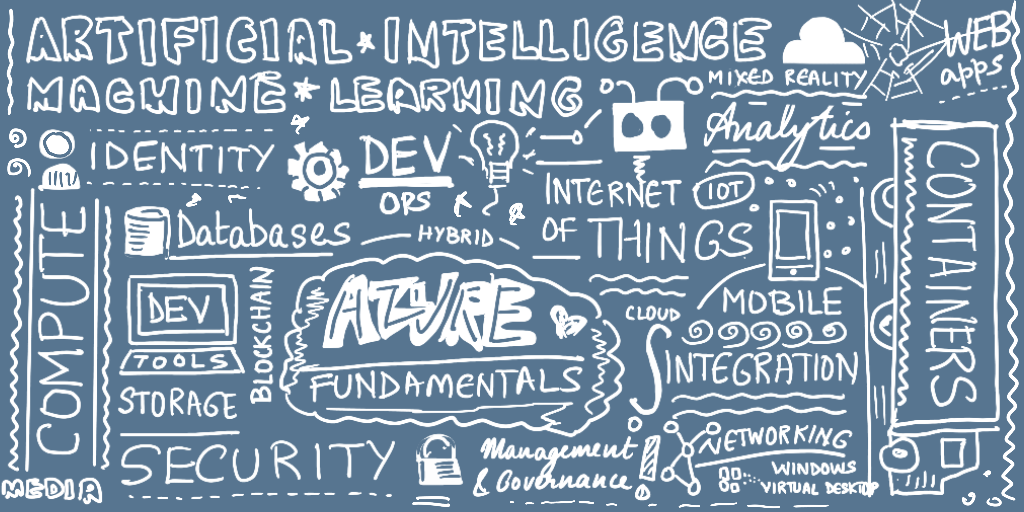 ARTIFICIAL * INTELLIGENCE
MACHINE * LEARNING
MIXED REALITY
WEB
apps
IDENTITY
DEV
OPS
Analytics
INTERNET
IOT
OF THINGS
CONTAINERS
COMPUTE
Databases
HYBRID
DEV
TOOLS
BLOCKCHAIN
AZURE
FUNDAMENTALS
CLOUD
MOBILE
INTEGRATION
STORAGE
SECURITY
Management
& Governance
NETWORKING
WINDOWS
VIRTUAL DESKTOP
MEDIA